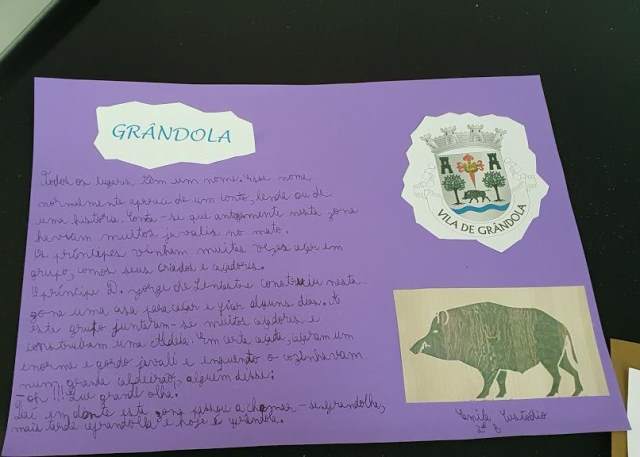 GRÂNDOLA
Todos os lugares têm um nome. Esse nome
normalmente aparece de um conto, lenda ou de
uma história. Conta-se que antigamente nesta zona
haviam muitos javalis no mato.
Os príncipes vinham muitas vezes caçar em
grupo, com os seus criados e caçadores.
O príncipe D. Jorge de Lencastre construiu nesta
zona uma casa para caçar e ficar alguns dias. A
este grupo juntaram-se muitos caçadores e
construíram uma Aldeia. Em certa caçada, caçaram um
enorme e gordo javali e enquanto o cozinhavam
num grande caldeirão, alguém disse:
- Oh!!! Que grande olha.
Daí em diante esta zona passou a chamar-se Grandolha,
mais tarde Grandolla e hoje é Grândola.
VILA DE GRÂNDOLA
Custódio